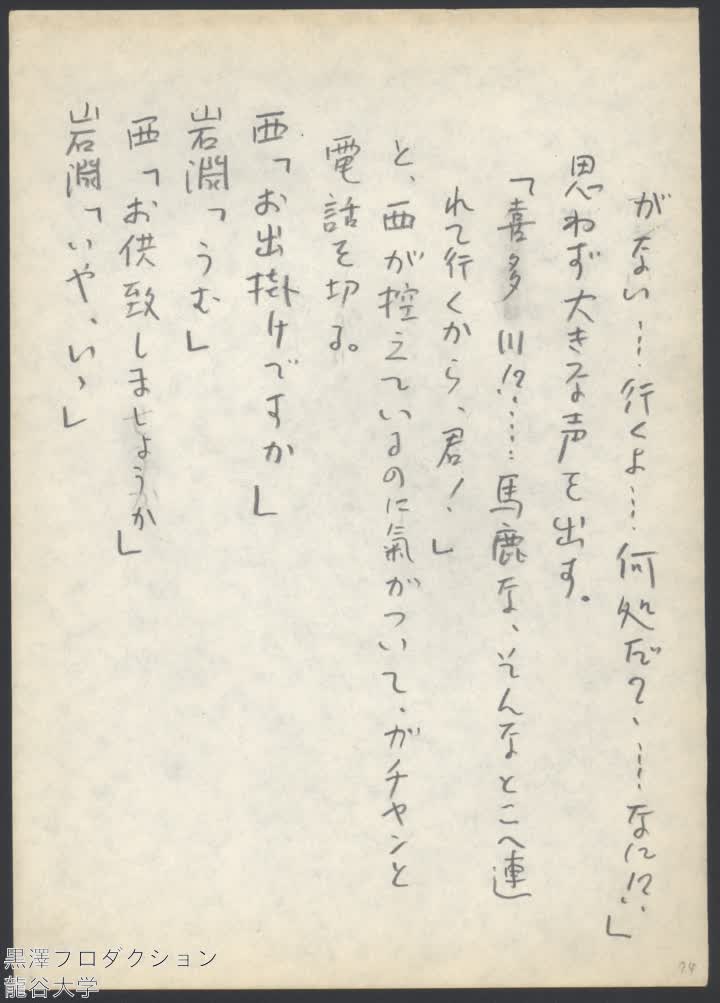 がない……行くよ……何処だ?、……なに!?」
思わず大きな声を出す。
「喜多川!?……馬鹿な、そんなとこへ連
れて行くから、君!」
と、西が控えているのに氣がついて、ガチャンと
電話を切る。
西「お出掛けですか」
岩淵「うむ」
西「お供致しましょうか」
岩淵「いや、いゝ」
74
黒澤プロダクション
龍谷大学